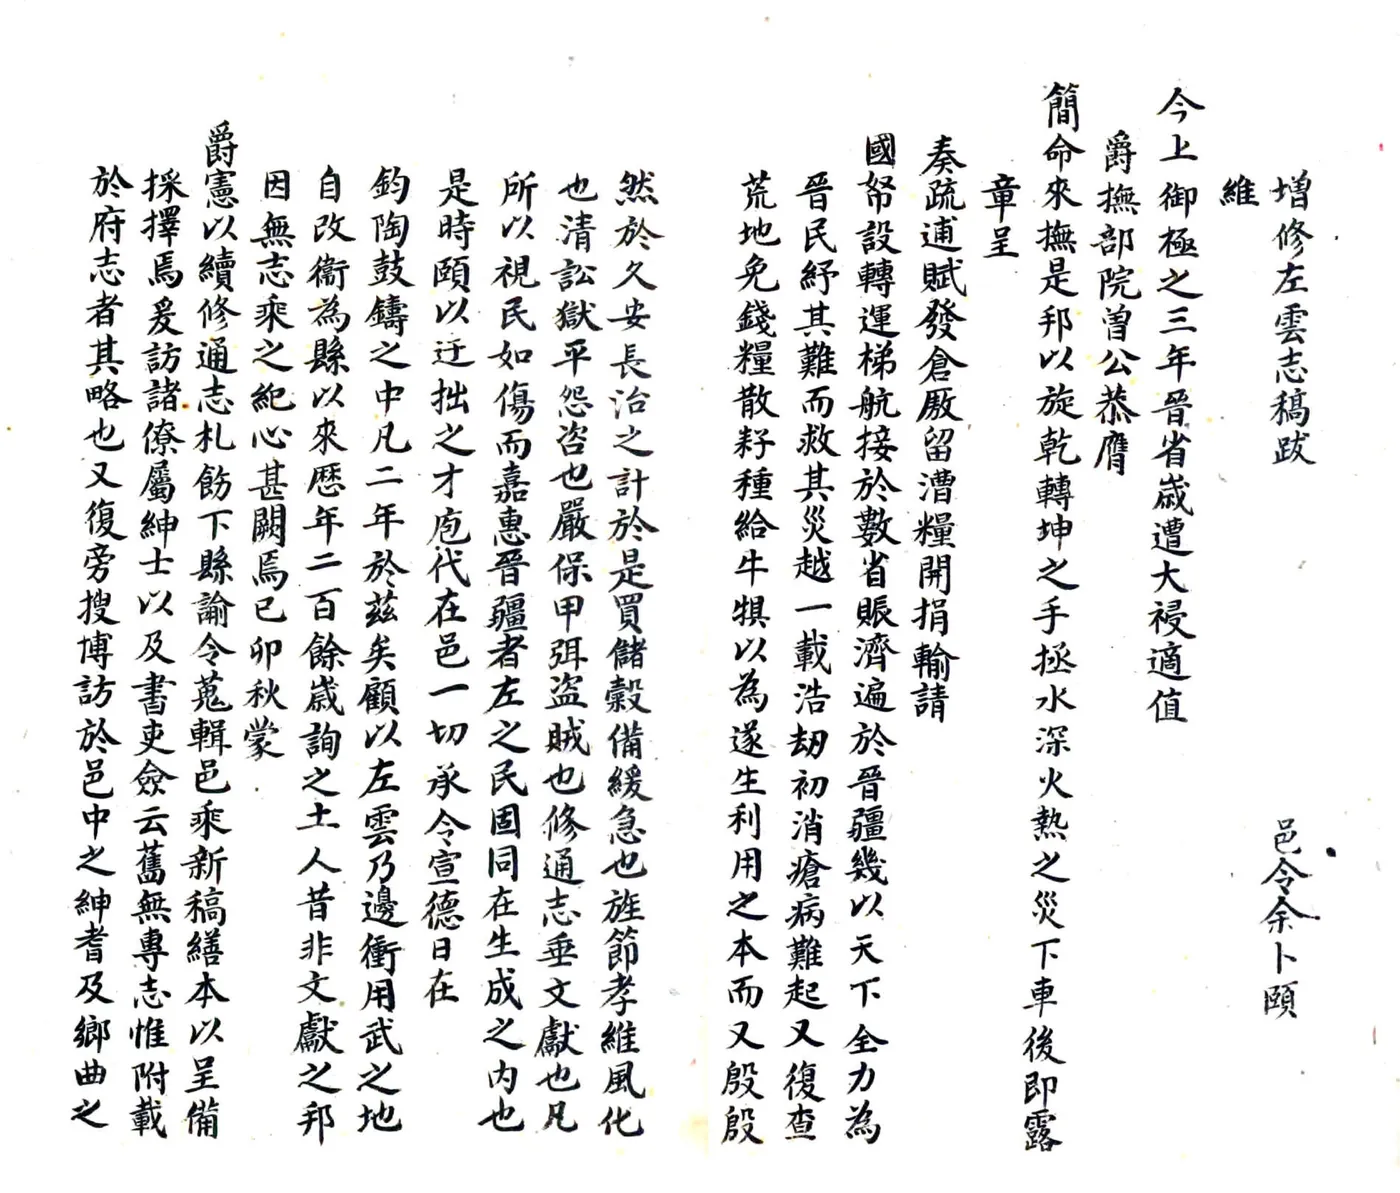 增修左雲志稿跋
邑令余卜頤
維
今上御極之三年晉省歲遭大祲適值
爵撫部院曾公恭膺
簡命來撫是邦以旋乾轉坤之手拯水深火熱之災下車後即露
章呈
奏疏逋賦發倉厫留漕糧開捐輸請
國帑設轉運梯航接於數省賑濟遍於晉疆幾以天下全力為
晉民紓其難而救其災越一載浩刼初消瘡病難起又復查
荒地免錢糧散耔種給牛犋以為遂生利用之本而又殷殷
然於久安長治之計於是買儲穀備緩急也旌節孝維風化
也清訟獄平怨咨也嚴保甲弭盜賊也修通志垂文獻也凡
所以視民如傷而嘉惠晉疆者左之民固同在生成之內也
是時頤以迂拙之才庖代在邑一切承令宣德日在
鈞陶鼓鑄之中凡二年於茲矣顧以左雲乃邊衝用武之地
自改衞為縣以來歷年二百餘歲詢之土人昔非文獻之邦
因無志乘之紀心甚闕焉已卯秋蒙
爵憲以續修通志札飭下縣諭令蒐輯邑乘新稿繕本以呈備
採擇焉爰訪諸僚屬紳士以及書吏僉云舊無專志惟附載
於府志者其略也又復旁搜博訪於邑中之紳耆及鄉曲之